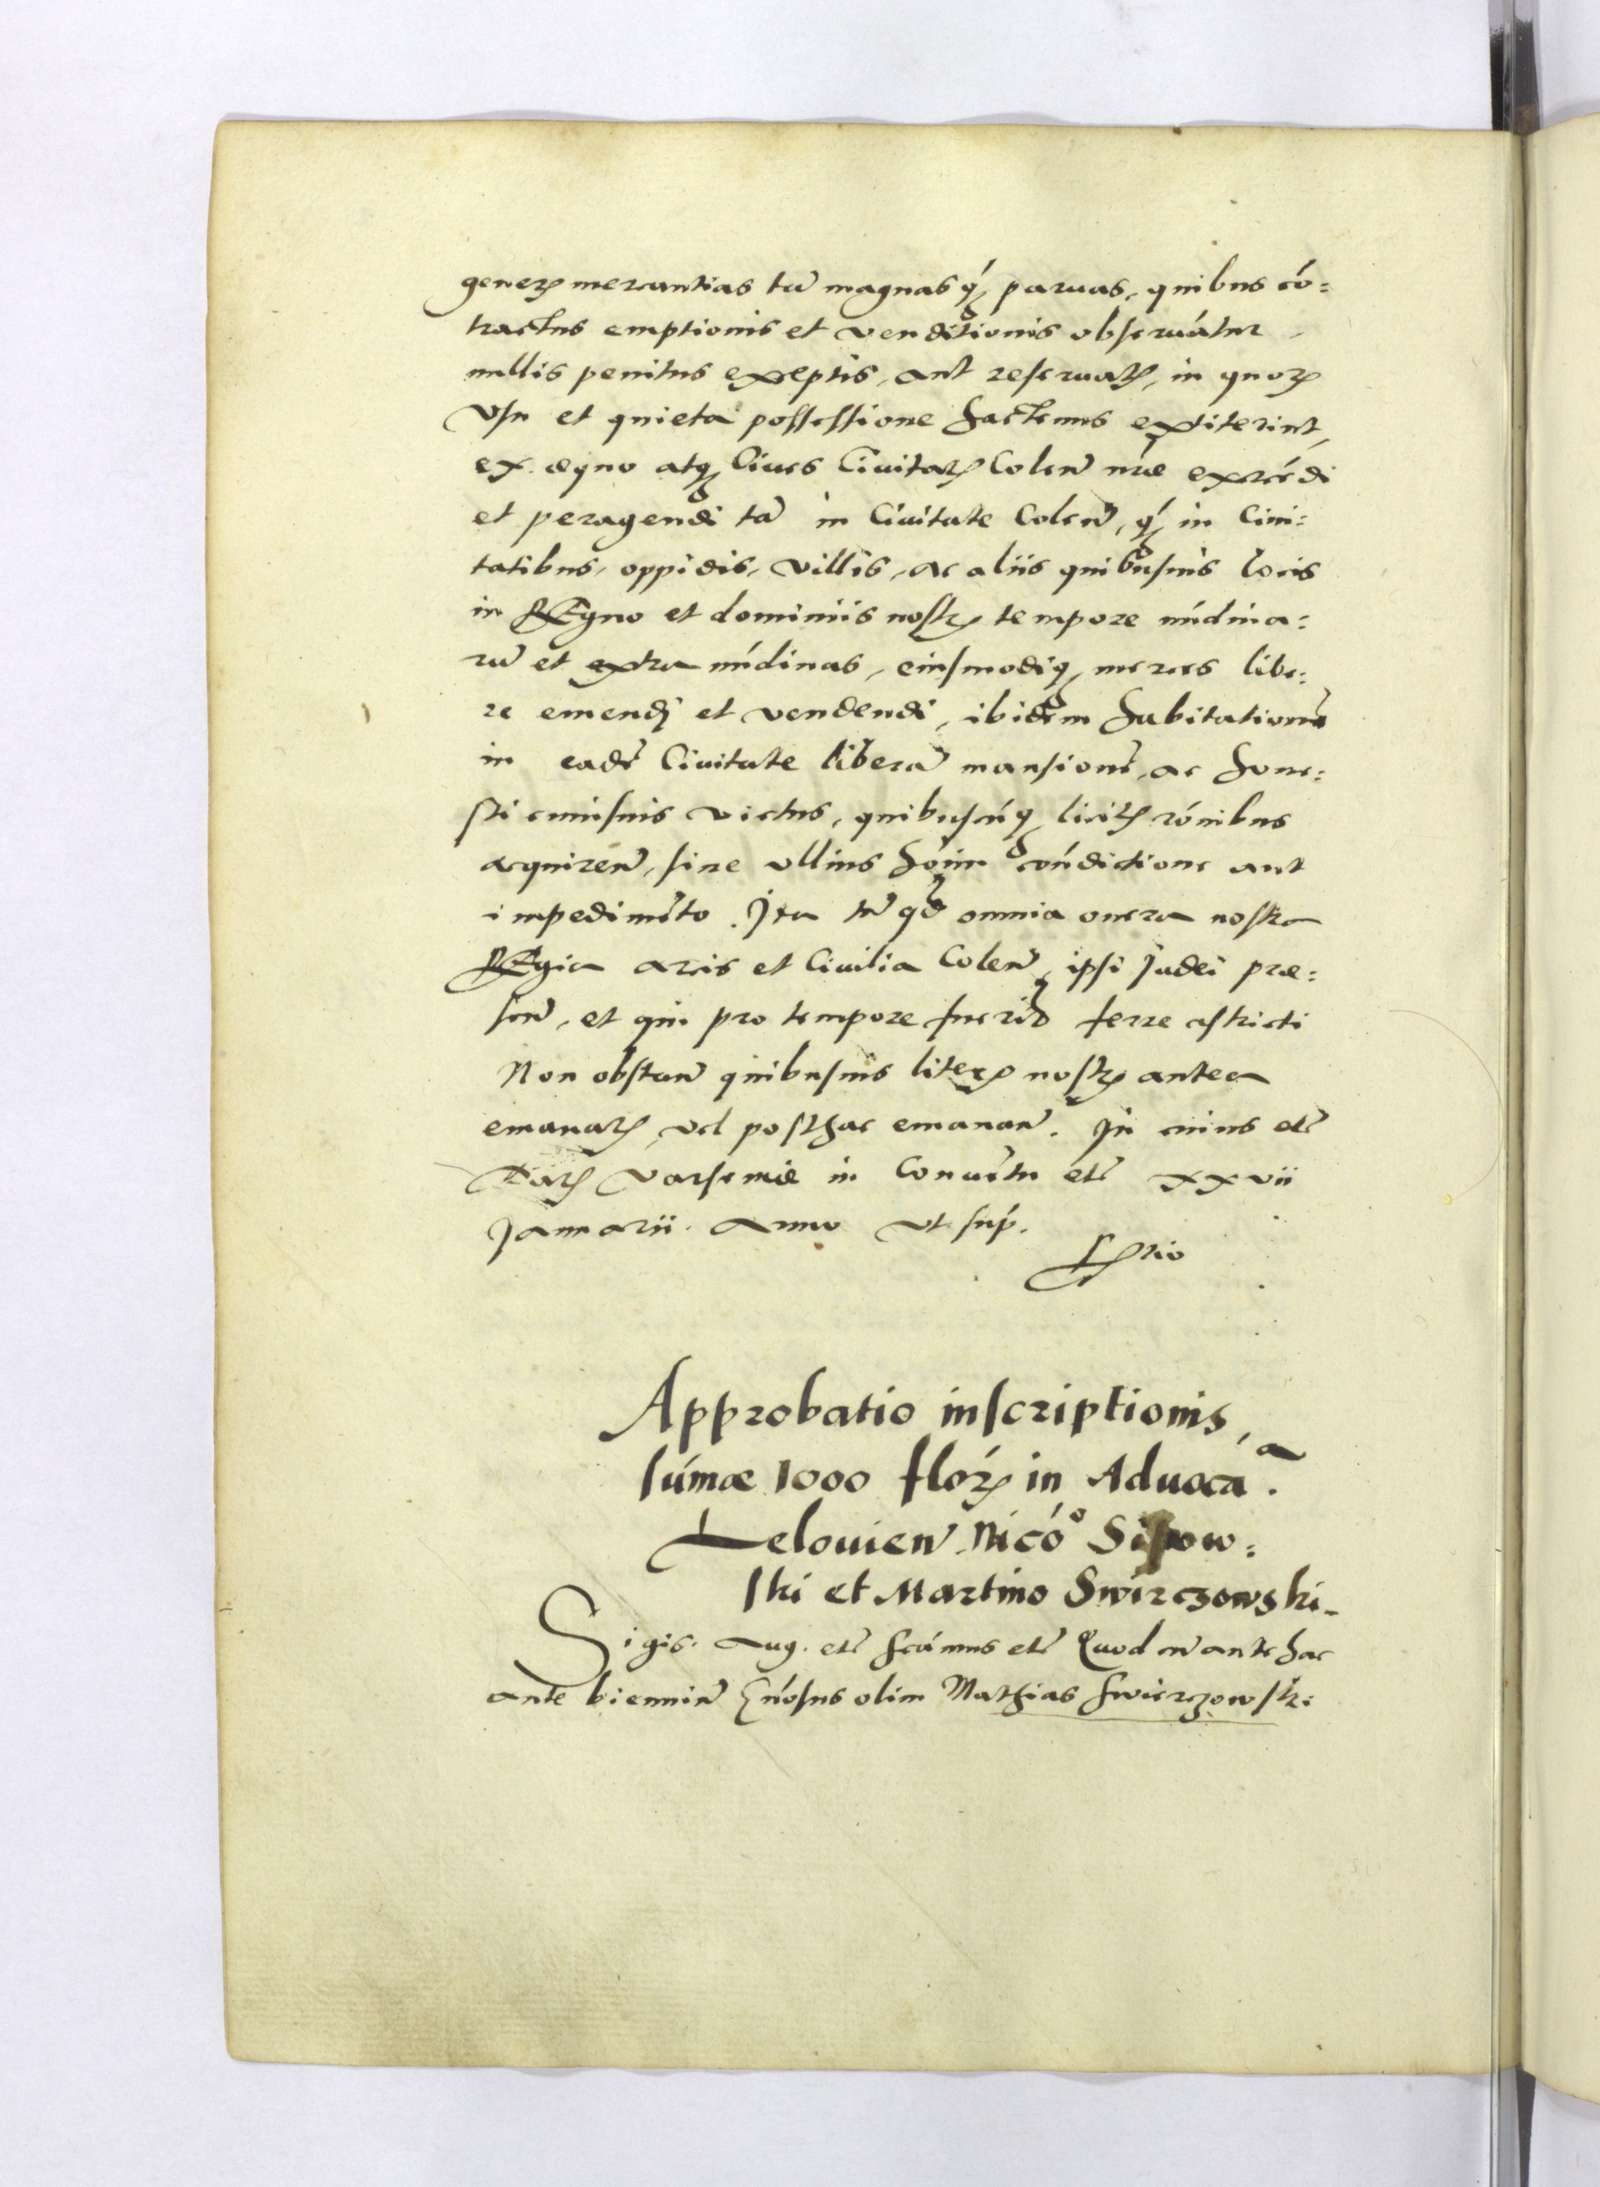 generꝝ mercantias tã magnas qͣ̃ paruas, quibus cõ=
tractus emptionis et venditionis obseruãtur
nullis penitus exceptis, aut reseruatꝭ, in quorꝝ
vsu et quieta possessione hactenus extiterint,
ex æquo atqꝫ Ciues Ciuitatꝭ Coleñ nr̃æ exercẽdi
et peragendi tã in Ciuitate Coleñ, q̃ in Ciui=
tatibus, oppidis, villis, ac aliis quibusuis locis
in REgno et dominiis nostrꝭ tempore nũdina=
rũ et extra nũdinas, eiusmodiqꝫ merces libe=
re emendj et vendendi, ibidem habitationẽ
in eadẽ Ciuitate liberã mansionẽ, ac hone=
sti cuiusuis victus, quibuscũqꝫ licitꝭ rõnibus
acquireñ, sine ullius hoĩm cõndictione aut
impedimẽto. Ita tñ qđ omnia onera nostra
REgia arcis et Ciuilia Coleñ, ipsi Judei præ=
señ, et qui pro tempore fuerĩt ferre astricti
Non obstañ quibusuis literꝭ nostrꝭ antea
emanatꝭ, vel posthac emanañ. In cuius etc̃
Datꝭ Varsouiæ in Conuẽtu etc̃ xxvii
Januarii. Anno vt sup̃.
Approbatio inscriptionis
sũmæ 1000 florꝝ in Aduocãᵃ.
Lelouieñ Nicõº Sipow=
ski et Martino Swirczowski.
Sigis. Aug. etc̃ Scimus etc̃ Quod cũ antehac
ante bienniũ Gñosus olim Mathias Swierczowski